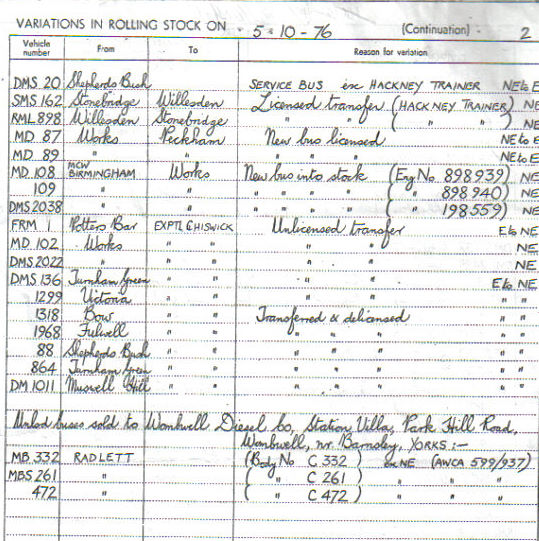 VARIATIONS IN ROLLING STOCK ON 5-10-76 (Continuation) 2
Vehicle number From To Reason for variation
DMS 20 Shepherds Bush SERVICE BUS exc HACKNEY TRAINER NE to E
SMS 162 Stonebridge Willesden Licensed transfer (HACKNEY TRAINER) NE
RML 898 Willesden Stonebridge " " ( " " ) NE
MD 87 Works Peckham New bus licensed NE to E
MD 89 " " " " " NE to E
MD 108 MCW BIRMINGHAM Works New bus into stock (Eng No 898939) NE
109 " " " " " " ( " 898940) NE
DMS 2038 " " " " " " ( " 198559) NE
FRM 1 Potters Bar EXPTL CHISWICK Unlicensed transfer E to NE
MD 102 Works " " " " NE
DMS 2022 " " " " " NE
DMS 136 Turnham Green " " " " E to NE
1299 Victoria " " " " " "
1318 Bow " " Transferred & delicensed " "
1968 Fulwell " " " " " " "
88 Shepherds Bush " " " " " " "
864 Turnham Green " " " " " " "
DM 1011 Muswell Hill " " " " " " "
Unlcd buses sold to Wombwell Diesel Co, Station Villa, Park Hill Road,
Wombwell, nr. Barnsley, YORKS :-
MB 332 RADLETT (Body No C 332) ex NE (AWCA 599/937)
MBS 261 " ( " C 261 ) " " "
472 " ( " C 472 ) " " "